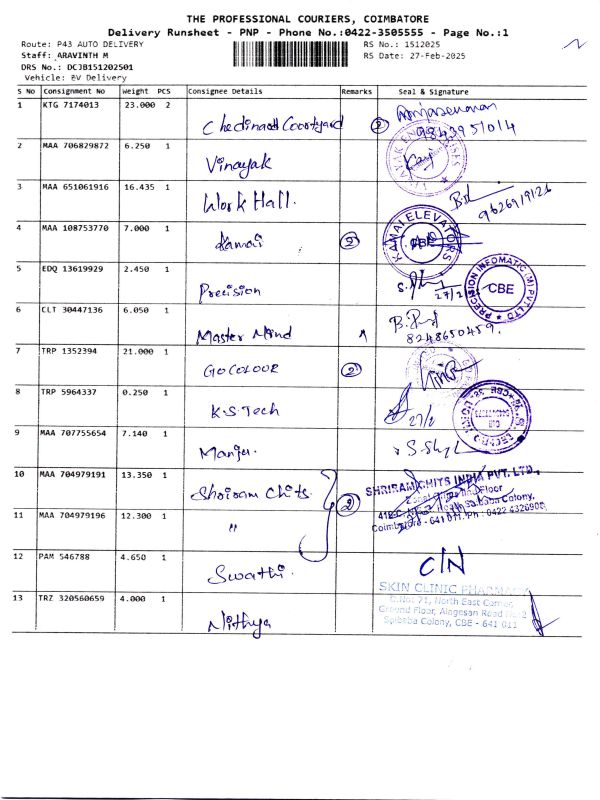 THE PROFESSIONAL COURIERS, COIMBATORE
Delivery Runsheet - PNP - Phone No.:0422-3505555 - Page No.:1
Route: P43 AUTO DELIVERY
RS No.: 1512025
Staff: ARAVINTH M
RS Date: 27-Feb-2025
DRS No.: DCJB151202501
Vehicle: BV Delivery
S No Consignment No Weight PCS Consignee Details Remarks Seal & Signature
1 KTG 7174013 23.000 2
Chedinadt Courtyard 2 9843951014
2 MAA 706829872 6.250 1
Vinayak
3 MAA 651061916 16.435 1
Work Hall.
4 MAA 108753770 7.000 1
Kamai 2 KAMAI ELEVATORS CBE
5 EDQ 13619929 2.450 1
Precision PRECISION INFOMATIC (M) PVT LTD CBE
6 CLT 30447136 6.050 1
Master Mind 8248650459.
7 TRP 1352394 21.000 1
GO COLOUR 2
8 TRP 5964337 0.250 1
K.S. Tech 27/2
9 MAA 707755654 7.140 1
Manju.
10 MAA 704979191 13.350 1
Shriram Chits 2 SHRIRAM CHITS INDIA PVT. LTD.,
11 MAA 704979196 12.300 1
" Coimbatore - 641 011. Ph : 0422 4326900,
12 PAM 546788 4.650 1
Swathi. C/N
SKIN CLINIC PHARMACY
13 TRZ 320560659 4.000 1
D.No: 21, North East Corner,
Ground Floor, Alagesan Road No:2
Saibaba Colony, CBE - 641 011
Nithya